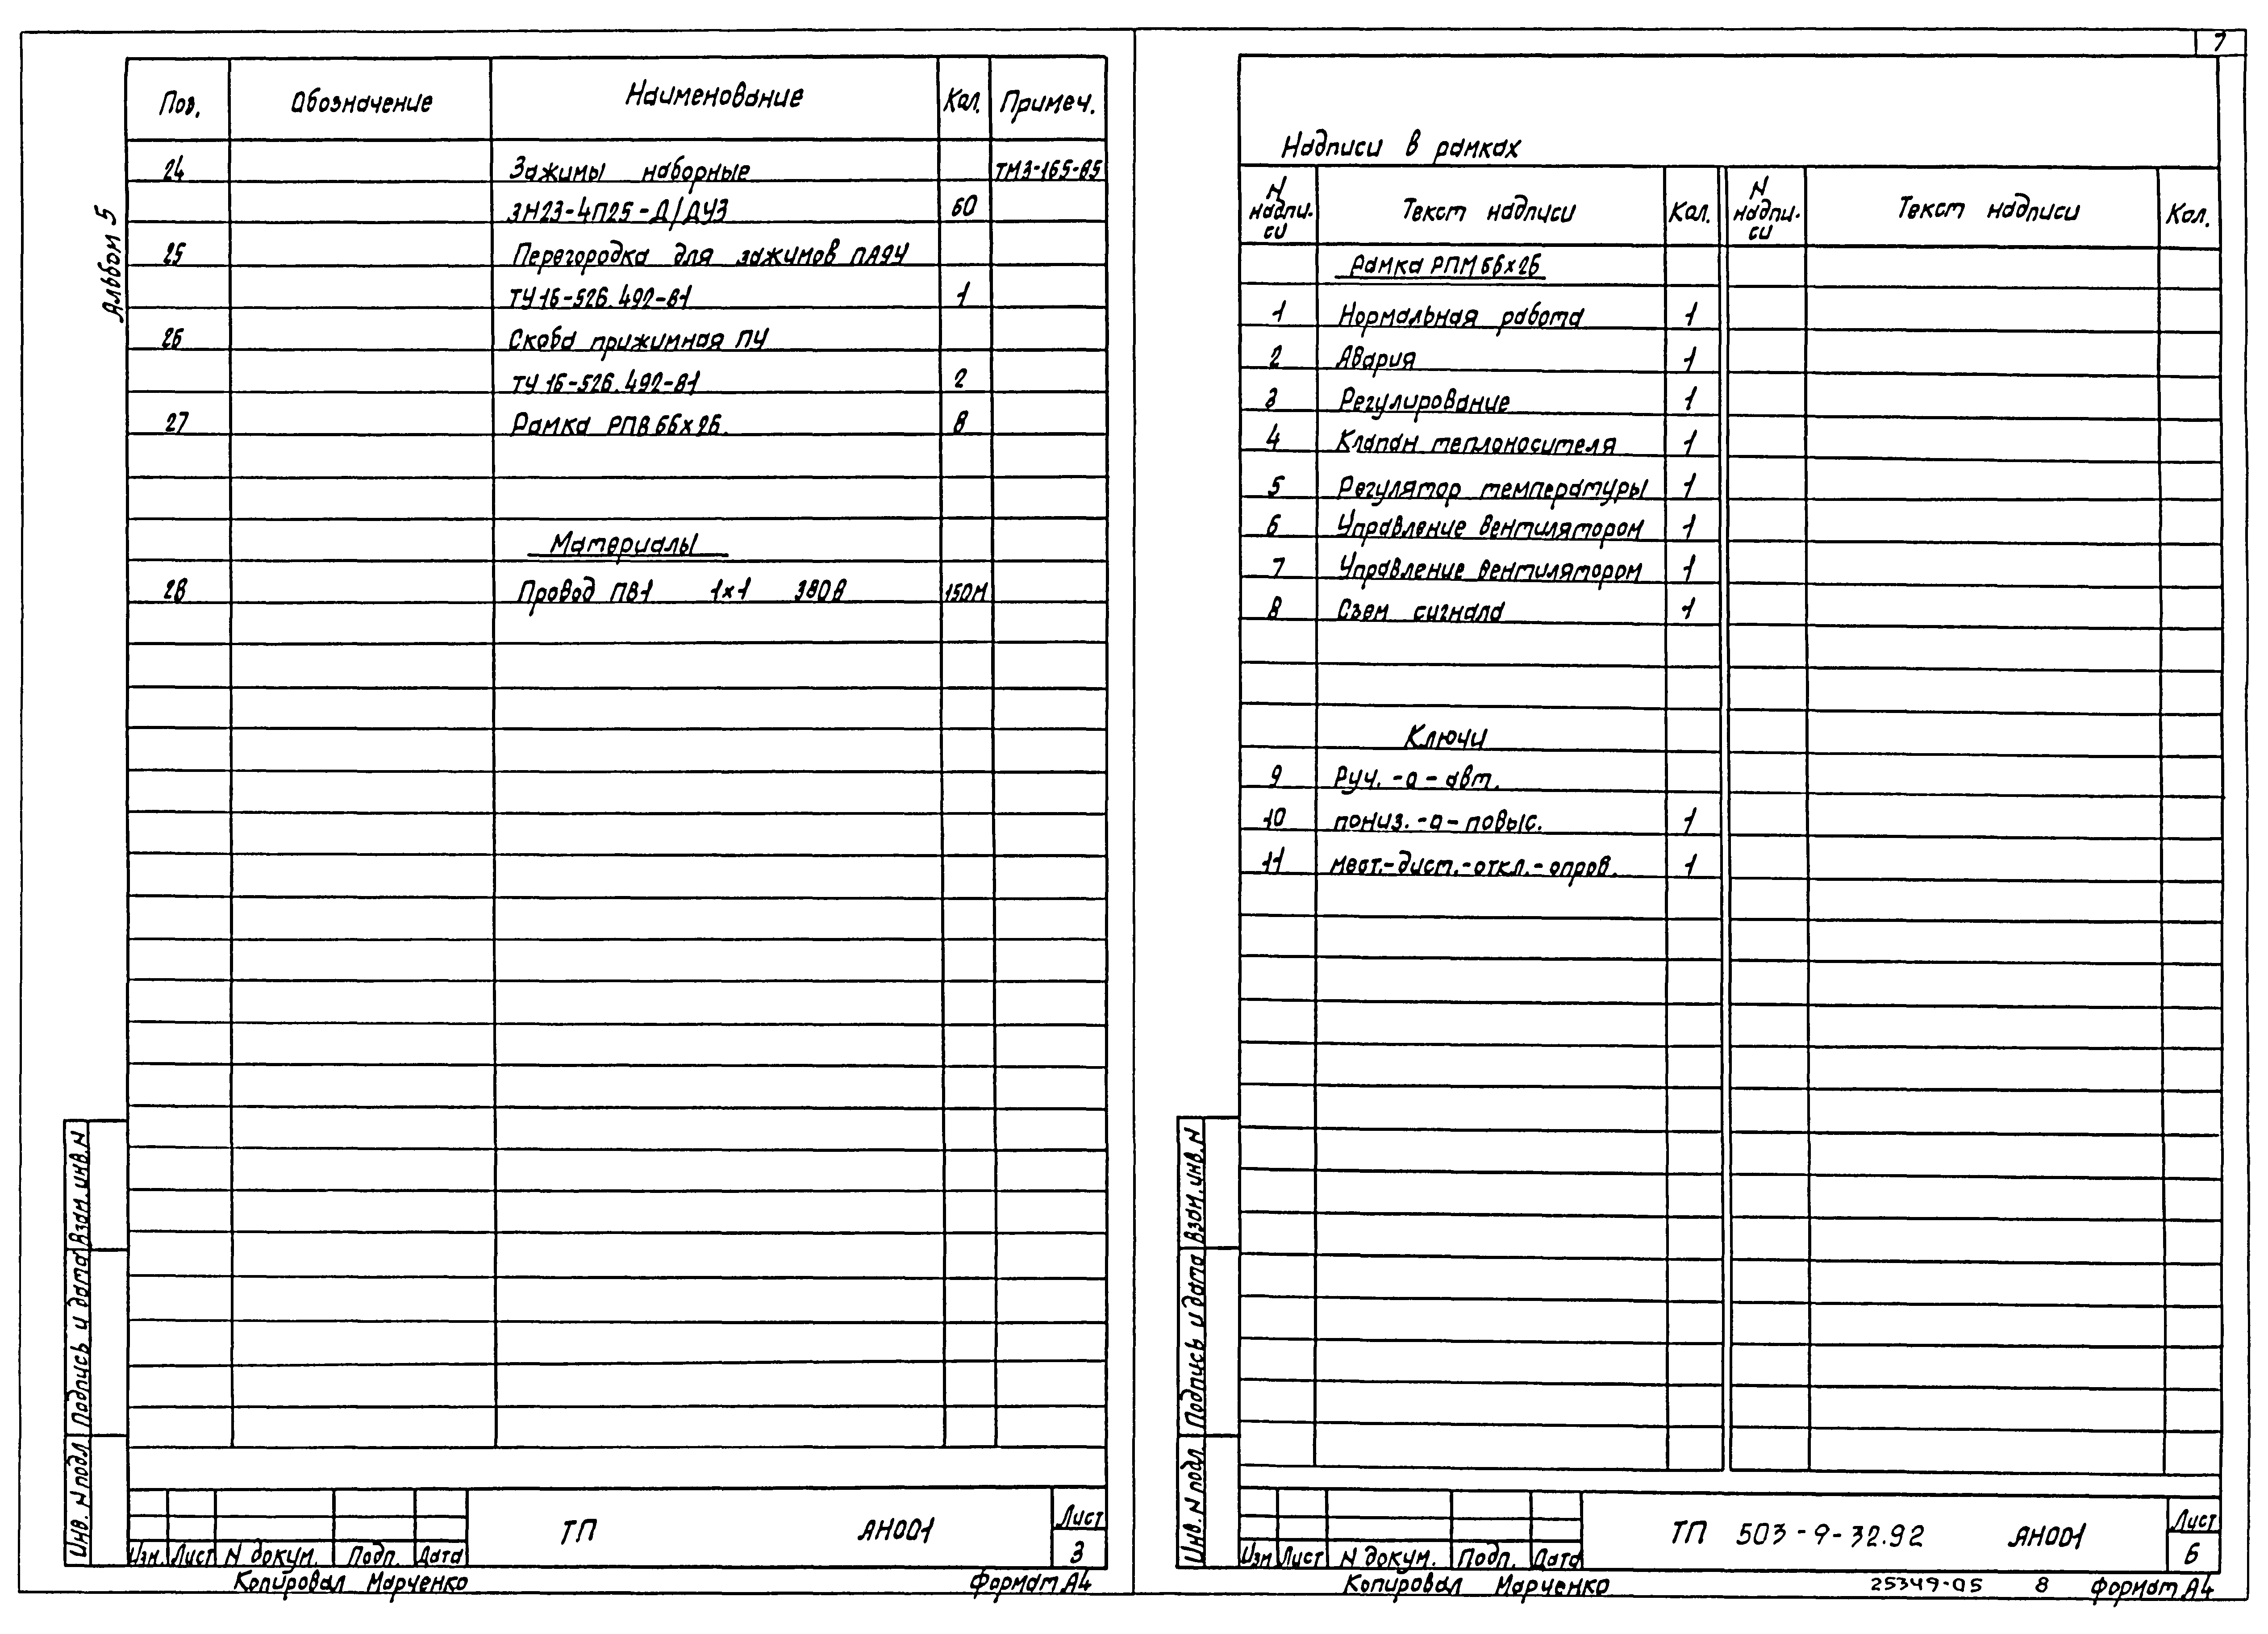 Альбом 5
Поз. Обозначение Наименование Кол. Примеч.
24 Зажимы наборные ТМ3-165-85
ЗН23-4П25-Д/ДУ3 60
25 Перегородка для зажимов ПА9У
ТУ16-526.492-81 1
26 Скоба прижимная ПУ
ТУ16-526.492-81 2
27 Рамка РПВ 66х26. 8
Материалы
28 Провод ПВ1 1х1 380В 150м
Взам. инв. N
Подпись и дата
Инв. N подл
Изм. Лист N докум. Подп. Дата
ТП АН001
Лист
3
Копировал Марченко Формат А4
7
Надписи в рамках
N надпи-си Текст надписи Кол. N надпи-си Текст надписи Кол.
Рамка РПМ 66х26
1 Нормальная работа 1
2 Авария 1
3 Регулирование 1
4 Клапан теплоносителя 1
5 Регулятор температуры 1
6 Управление вентилятором 1
7 Управление вентилятором 1
8 Съем сигнала 1
Ключи
9 Руч.-о-авт.
10 пониз.-о-повыс. 1
11 мест.-дист.-откл.-опров. 1
Взам. инв. N
Подпись и дата
Инв. N подл
Изм Лист N докум. Подп. Дата
ТП 503-9-32.92 АН001
Лист
6
Копировал Марченко 25349-05 8 Формат А4